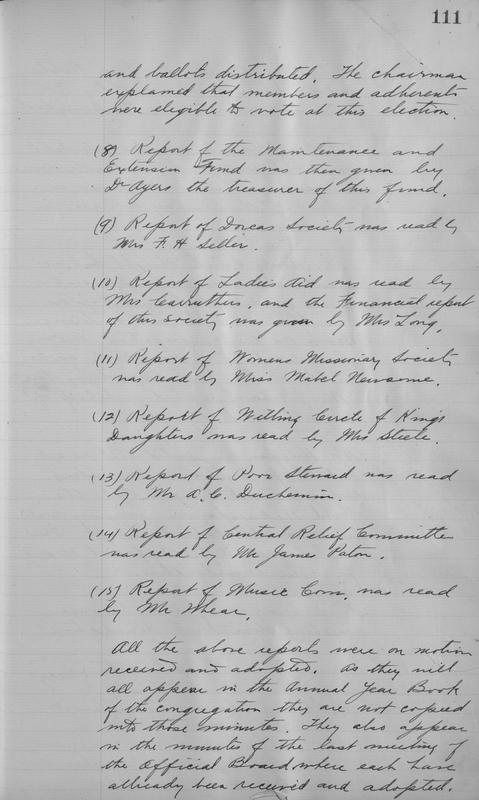 111
and ballots distributed. The chairman
explained that members and adherents
were eligible to vote at this election.
(8) Report of the Maintenance and
Extension Fund was then given by
Dr Ayers the treasurer of this fund.
(9) Report of Dorcas Society was read by
Mrs F. H. Seller.
(10) Report of Ladies Aid was read by
Mrs Carruthers, and the Financial report
of this society was given by Mrs Long.
(11) Report of Womens Missionary Society
was read by Miss Mabel Newsome.
(12) Report of Willing Circle of Kings
Daughters was read by Mrs Steele.
(13) Report of Poor Steward was read
by Mr A. C. Duchemin.
(14) Report of Central Relief Committee
was read by Mr James Paton.
(15) Report of Music Com. was read
by Mr Whear.
All the above reports were on motion
received and adopted. As they will
all appear in the Annual Year Book
of the congregation they are not copied
into those minutes. They also appear
in the minutes of the last meeting of
the Official Board where each have
allready been received and adopted.